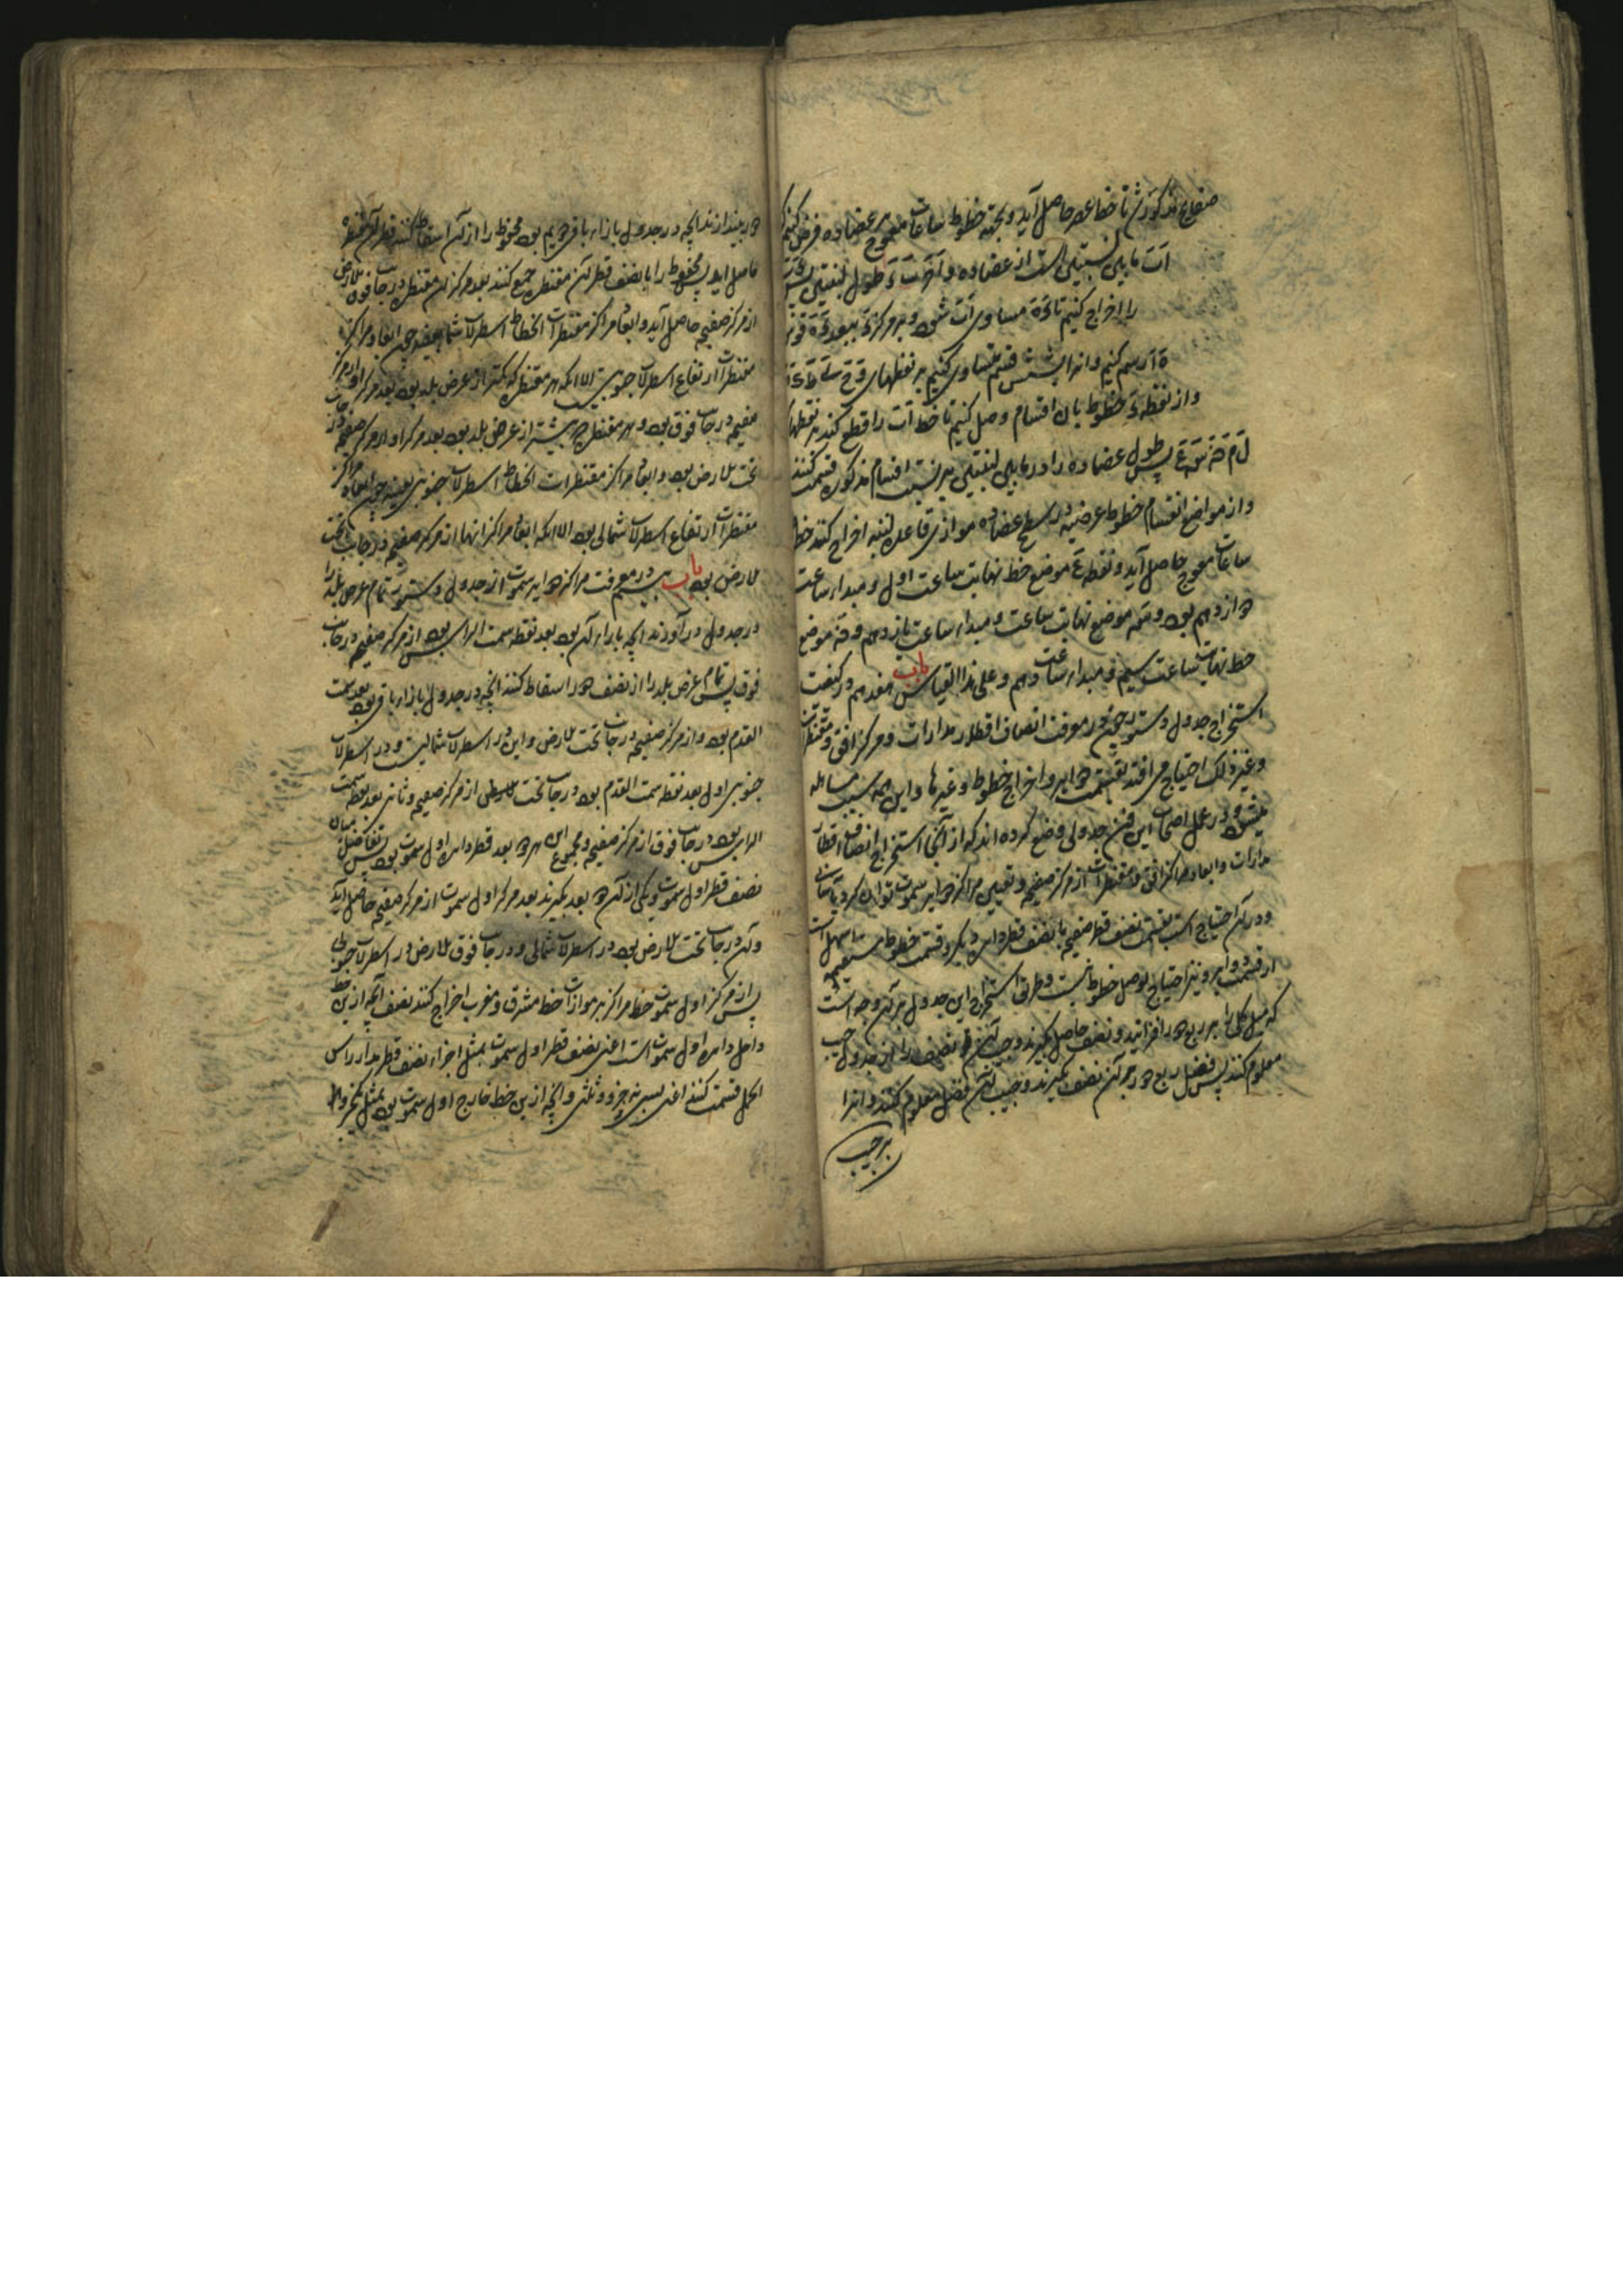 صفایح مذکور شد تا خط عصر حاصل آید و بجهة خطوط ساعات معوج بر عضاده فرض کنیم
آت مابین لبنتین است از عضاده و آخر آت طول لبنتین
را اخراج کنیم تا مساوی آت شود و بر مرکز ببعد قوس
رسم کنیم و انرا بشش قسم متساوی کنیم بر نقطهای
و از نقطه خطوط بان اقسام وصل کنیم تا خط آت را قطع کند بر نقطهای
پس طول عضاده را در مابین لبنتین بر نسبت اقسام مذکوره قسمت کنند
و از مواضع انقسام خطوط عرضیه در سطح عضاده موازی قاعده لبنه اخراج کنند خط
ساعات معوج حاصل آید و نقطه ع موضع خط نهایت ساعت اول و مبداء ساعت
دوازدهم بود و موضع نهایت ساعت و مبداء ساعت یازدهم و موضع
خط نهایت ساعت سیم و مبداء ساعت دهم و علی هذا القیاس باب هفدهم در کیفیت
استخراج جدول دستور چون در معرفت انصاف اقطار مدارات و مرکز افق و مقنطرات
و غیر ذلک احتیاج می افتد بقسمت دوایر و اخراج خطوط و غیرها و این همه سبب مساهله
میشود در عمل اصحاب این فن جدولی وضع کرده اند که از آنجا استخراج انصاف اقطار
مدارات و ابعاد مراکز افق و مقنطرات از مرکز صفیحه و تعیین مراکز دوایر سموت توان کرد
و در آن احتیاج است بقسمت نصف قطر صفیحه یا نصف قطر دایره دیگر و قسمت خطوط مستقیمه اسهل است
از قسمت دوایر و نیز احتیاج بوصل خطوط نیست و طریق استخراج این جدول بر آن وجه است
که میل کلی را بر ربع دور افزایند و نصف حاصل بگیرند و جیب آن نصف را از جدول جیب
معلوم کنند پس فضل ربع دور بر آن نصف بگیرند و جیب آن فضل معلوم کنند و انرا
بر جیب
دور بیندازند انچه در جدول بازاء باقی دویم بود محفوظ را از آن اسقاط کنند قطر آن مقنطره
حاصل اید پس محفوظ را با نصف قطر آن مقنطره جمع کنند بعد مرکز ان مقنطره در جانب فوق الارض
از مرکز صفیحه حاصل آید و ابعاد مراکز مقنطرات انحطاط اسطرلاب شمالی بعینه چون ابعاد مراکز
مقنطرات ارتفاع اسطرلاب جنوبیست الا انکه هر مقنطره که کمتر از عرض بلد بود بعد مرکز او از مرکز
صفیحه در جانب فوق بود و هر مقنطره که بیشتر از عرض بلد بود بعد مرکز او از مرکز صفیحه در جانب
تحت الارض بود و ابعاد مراکز مقنطرات انحطاط اسطرلاب جنوبی بعینه چون ابعاد مراکز
مقنطرات ارتفاع اسطرلاب شمالی بود الا انکه ابعاد مراکز انها از مرکز صفیحه در جانب تحت
الارض بود باب در معرفت مراکز دوایر سموت از جدول دستور تمام عرض بلد را
در جدول در آورند انچه بازاء آن بود بعد نقطه سمت الراس بود از مرکز صفیحه در جانب
فوق پس تمام عرض بلد را از نصف دور اسقاط کنند انچه در جدول بازاء باقی بود بعد سمت
القدم بود از مرکز صفیحه در جانب تحت الارض و این در اسطرلاب شمالیست و در اسطرلاب
جنوبی اول بعد نقطه سمت القدم بود در جانب تحت الارض از مرکز صفیحه و ثانی بعد نقطه سمت
الراس بود در جانب فوق از مرکز صفیحه و مجموع این هر دو بعد قطر دایره اول سموت بود پس تفاضل میان
نصف قطر اول سموت و یکی از آن دو بعد بگیرند بعد مرکز اول سموت از مرکز صفیحه حاصل آید
و آن در جانب تحت الارض بود در اسطرلاب شمالی و در جانب فوق الارض در اسطرلاب جنوبی
پس از مرکز اول سموت خط مراکز بر موازات خط مشرق و مغرب اخراج کنند نصف آنچه ازین خط
داخل دایره اول سموت است اعنی نصف قطر اول سموت بمثل اجزاء نصف قطر مدار راس
الحمل قسمت کنند اعنی بسی و نه جزو و ثلثی و آنچه ازین خط خارج اول سموت بود بمثل